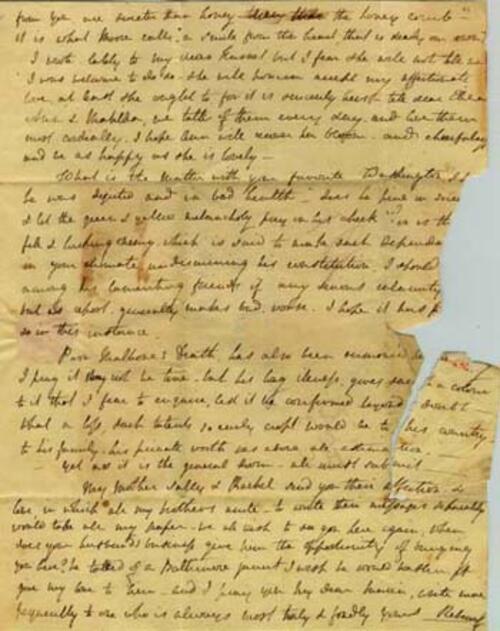 from you are sweeter than honey the honey comb"
it is what Moore calls, "a smile from the heart that is dearly our own"
I wrote lately to my dear but I fear she will not
I was welcome to do so. she will however accept my affectionate
love, at least she ought to for it is sincerely hers tell dear
we talk of them every day and love them
most cordially. I hope Ann will recover her bloom and cheerfulness
and be as happy as she is lovely—
What is the matter with your favorite Washington I
he was dejected and in bad health— does he pine in
& let the green & yellow melancholy prey on his cheek"? or is the
fell & lurking enemy which is said to make such
in your climate, undermining his constitution. I should
among his lamenting friends of any serious calamity
but as report, generally makes bad, worse. I hope it has
so in this instance.
Poor Death, has also been
I pray it may not be true. but his long illness, gives such a colour
to it that I fear to enquire, lest it be confirmed beyond a doubt
What a loss, such talents so early cropt would be to his country
to his family. his private worth was above all
Yet as it is the general doom— all must submit
My Mother Sally & Rachel send you their affection &
love in which all my brothers unite— to write their messages separately
would take all my paper. we all wish to see you here again, when
does your husband's business give him the opportunity of bringing
you here? he talked of a Baltimore jaunt I wish he would hasten it
give my love to him— and I pray you my dear write more
frequently to one who is always most truly & fondly yours Rebecca